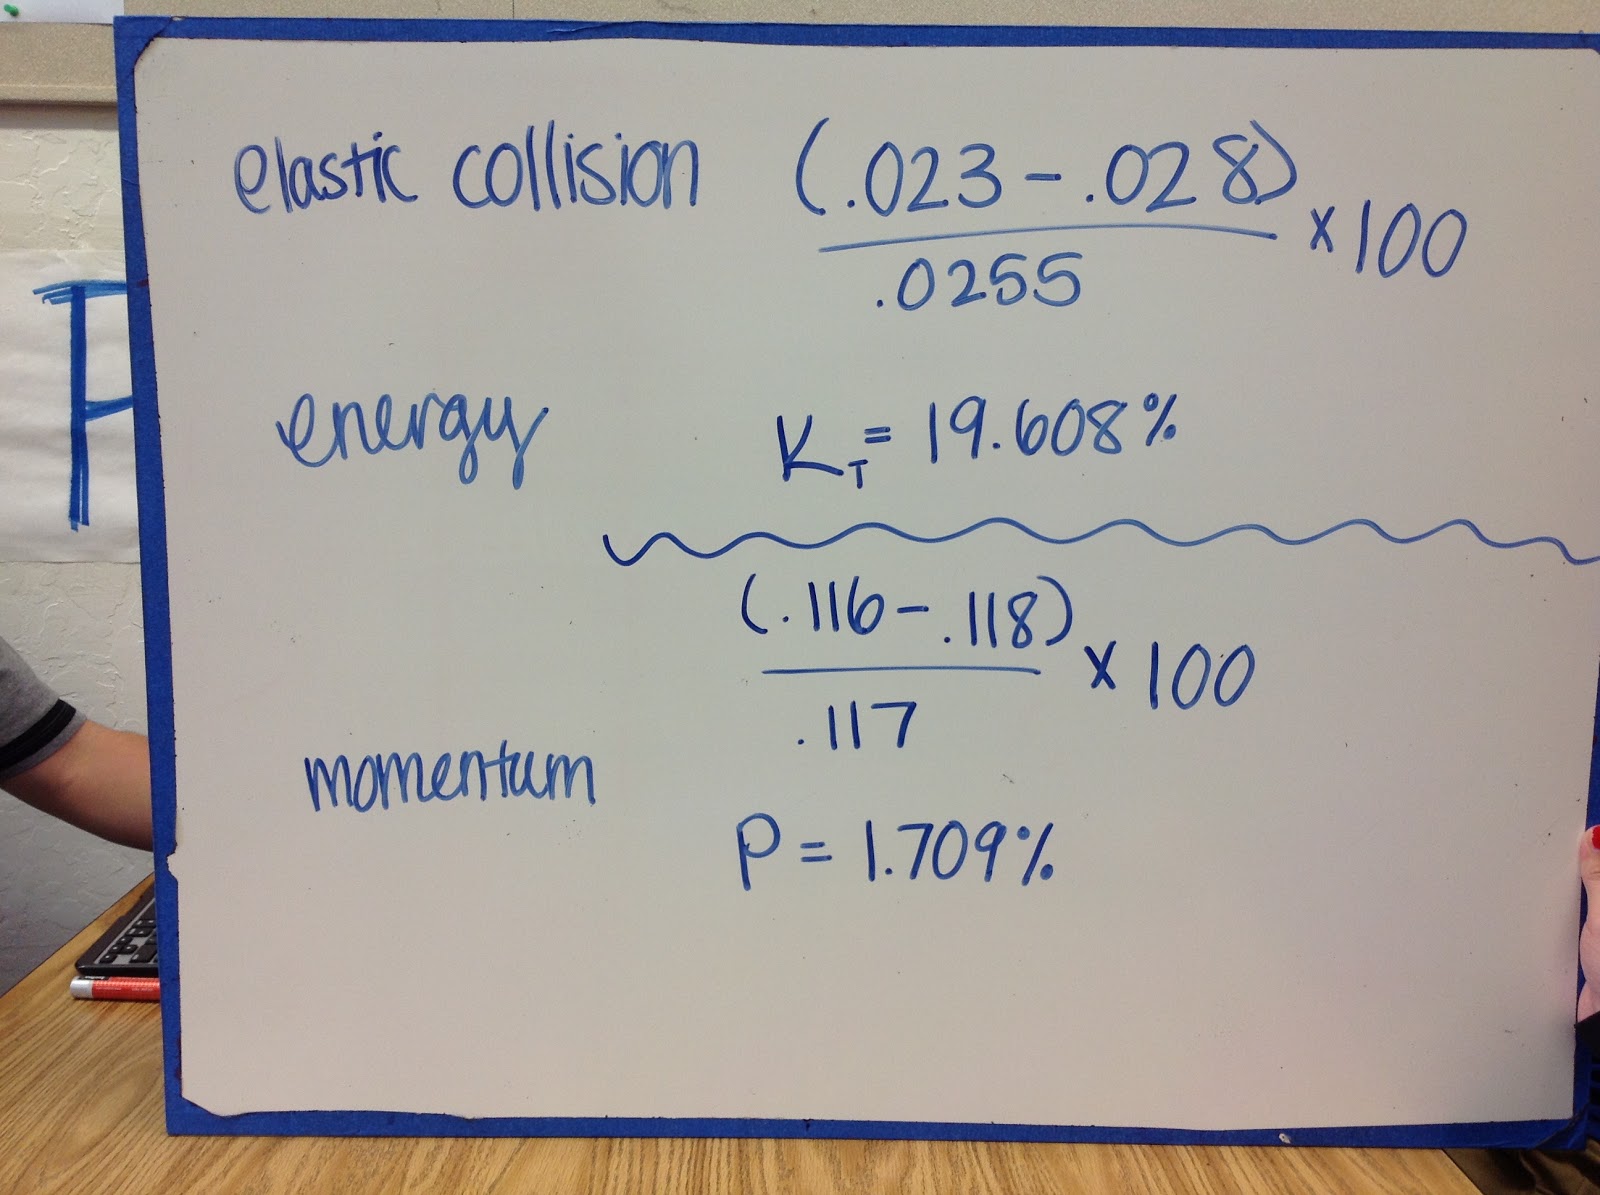 elastic collision (.023 - .028) × 100
.0255
energy K_T = 19.608%
(.116 - .118) × 100
.117
momentum
P = 1.709%
P